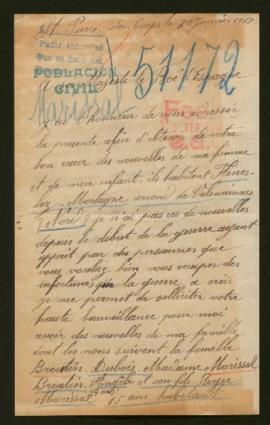 St Pierre des Corps le 30 Janvier 1917
Pedir informes
que se hace
51172
POBLACION
CIVIL
A sa Majesté le Roi d'Espagne
Marissal
J'ai l'honneur de vous adresser
la présente afin d'obtenir de votre
bon cœur des nouvelles de ma femme
et de mon enfant ils habitent
Mortagne arrond de Valenciennes
(Nord) je n'ai pas eu de nouvelles
depuis le début de la guerre ayant
appris par des personnes que
vous vouliez bien vous occuper des
infortunes que la guerre a créé
je me permet de solliciter votre
haute bienveillance pour moi
avoir des nouvelles de ma famille
dont les noms suivent la famille
Dubois Madame Marissal
Angèle et son fils Roger
Marissal 15 ans habitant